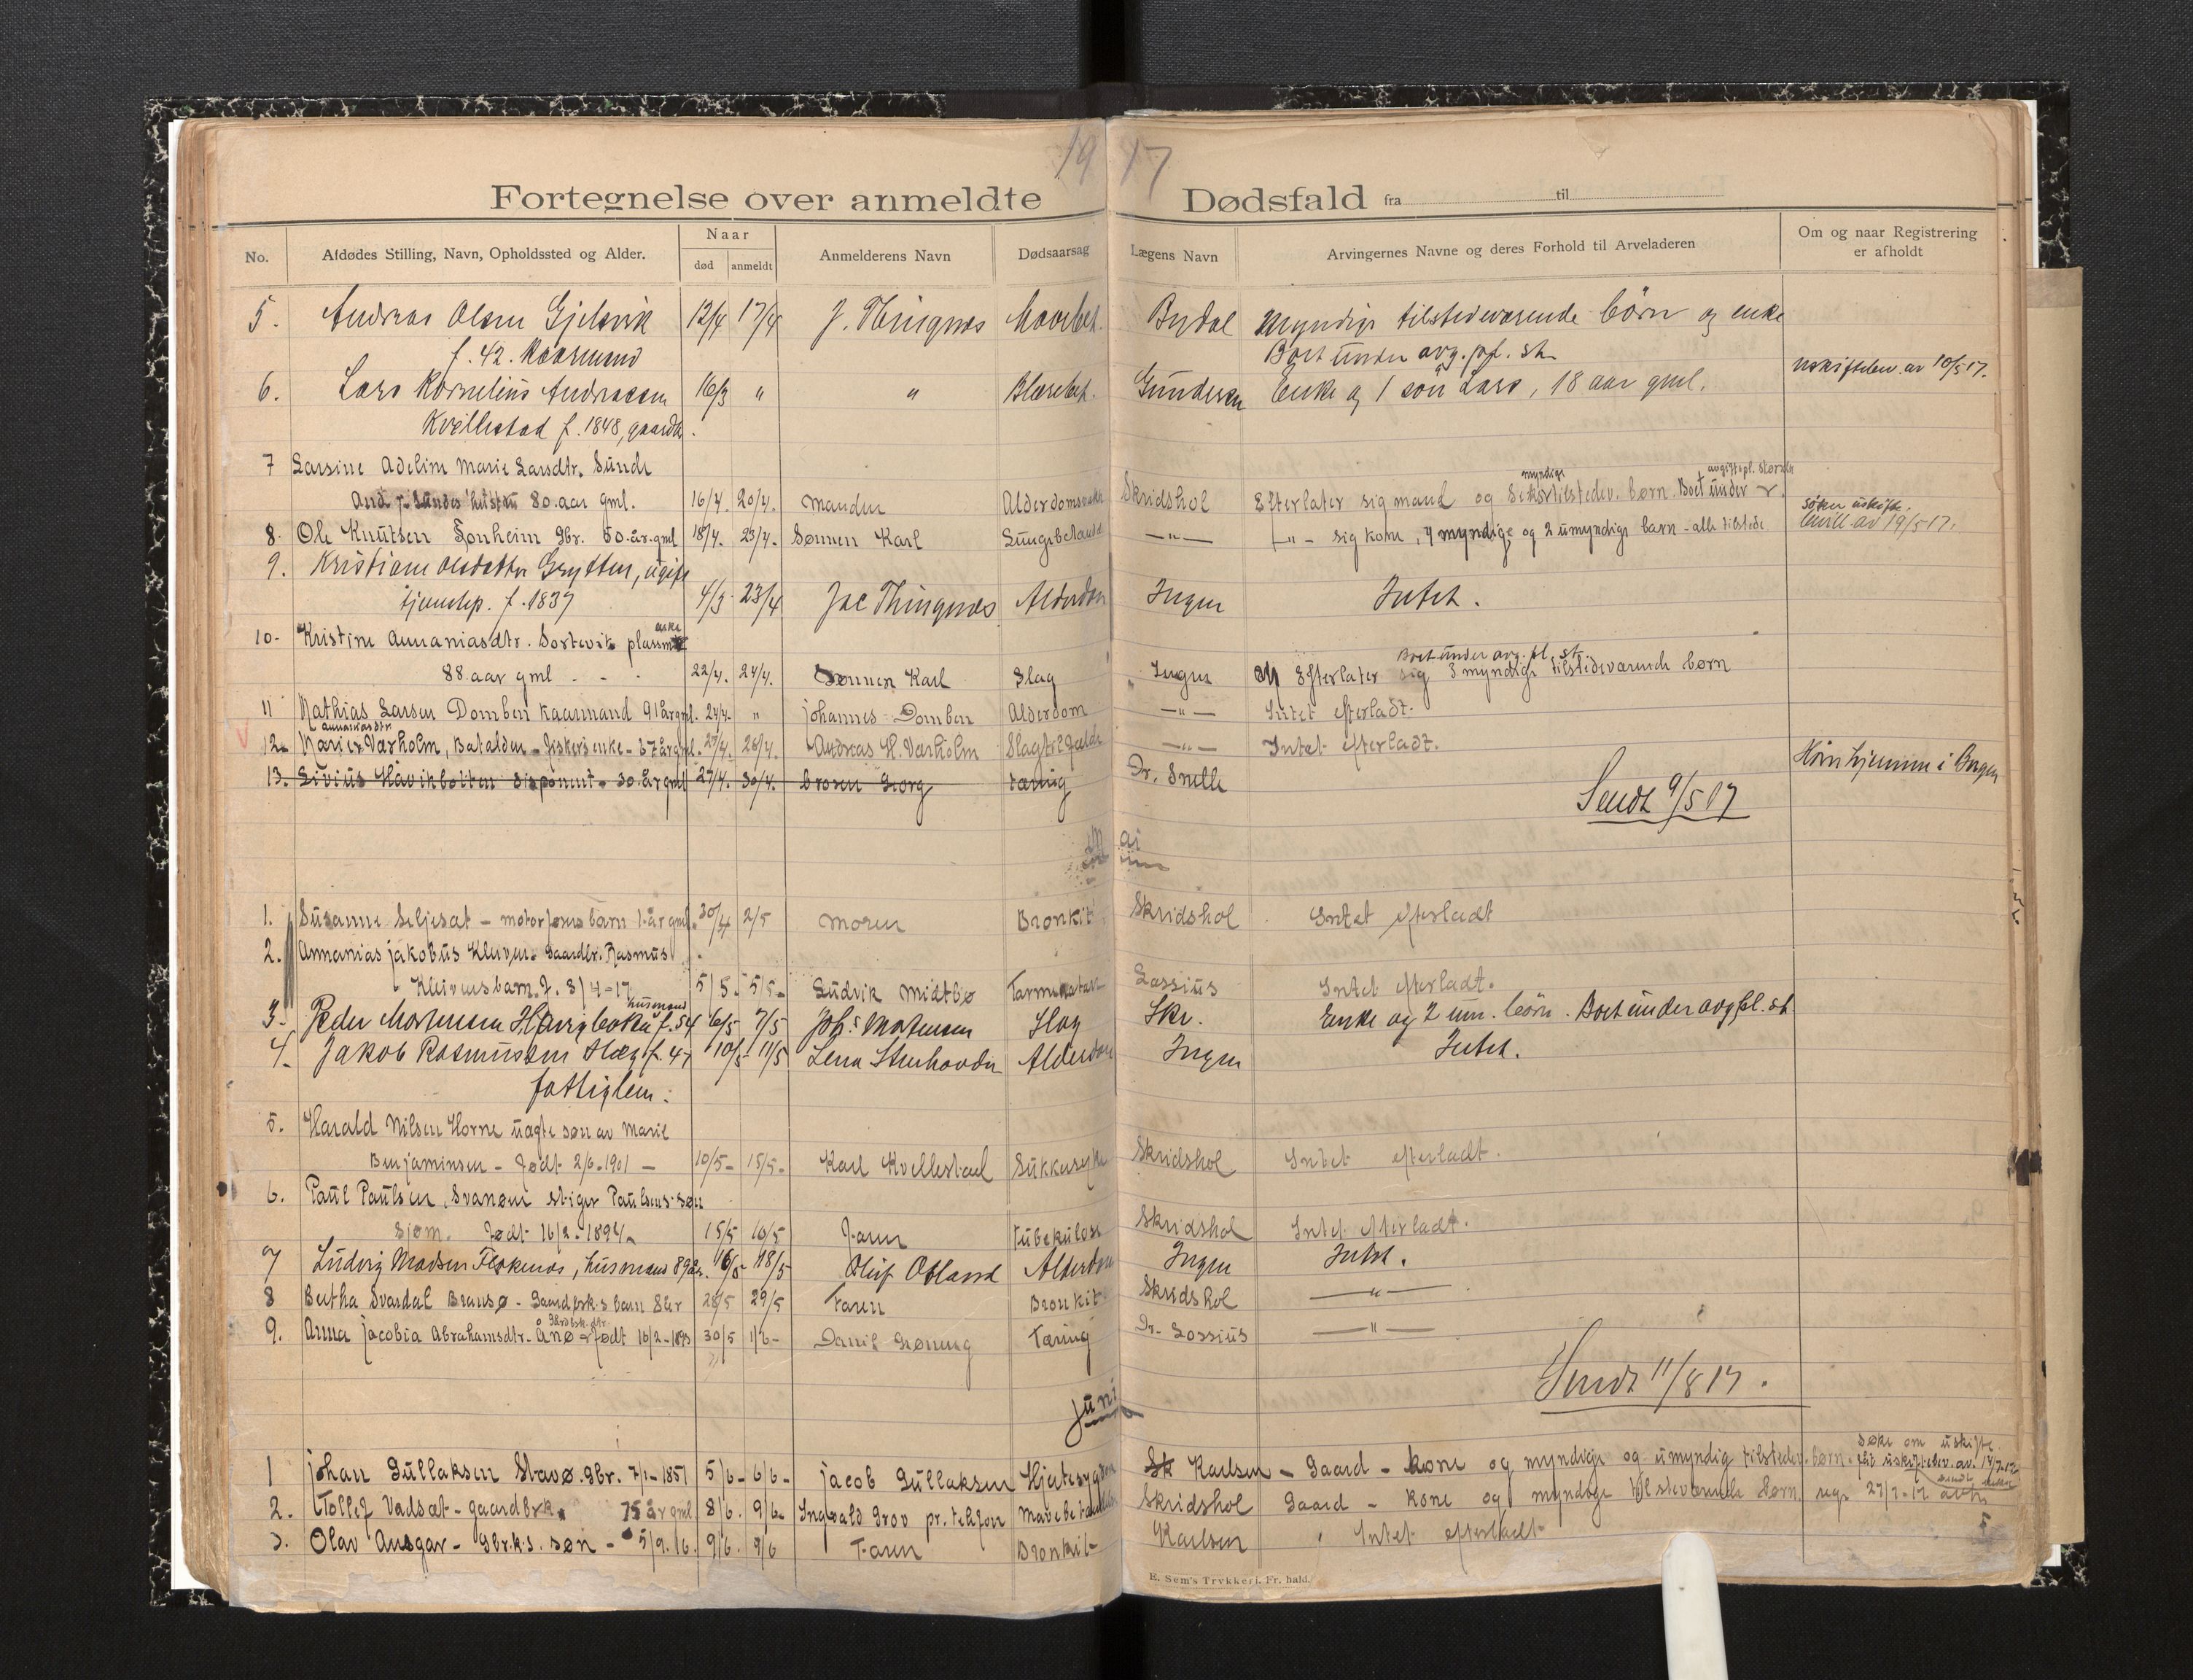 19 17
Fortegnelse over anmeldte Dødsfald fra til
No. Afdødes Stilling, Navn, Opholdssted og Alder. Naar død anmeldt Anmelderens Navn Dødsaarsag Lægens Navn Arvingernes Navne og deres Forhold til Arveladeren Om og naar Registrering er afholdt
5. Andreas Olsen Gjelsvik 12/4 17/4 J. Thingnes Mavebet. Bydal Myndige tilstedeværende börn og enke
f. 42. Kaarmand Boet under avg.pl. st.
6. Lars Kornelius Andreassen 16/3 " " Blærebet. Gundersen Enke og 1 sön Lars, 18 aar gml. uskiftebev. av 10/5 17.
Kvellestad f. 1848, gaardb.
7 Larsine Adeline Marie Larsdtr. Sunde
80 aar gml. 16/4. 20/4. Manden Alderdomssvakh Skridshol Efterlater sig mand og myndige tilstedev. børn. Boet under avgiftspl. størrelse
8. Ole Knutsen Sonheim Gbr. 50.år.gml 18/4. 23/4. Sønnen Karl Lungebetændelse —"— —"— sig kone, 4 myndige og 2 umyndige barn - alle tilstede søker uskifte. bevill. av 19/5 17.
9. Kristiane Olsdatter Grytten, ugift
tjenestep. f. 1837 4/3 23/4 Jac Thingnes Alderdom Ingen Intet.
10- Kristine Annaniasdtr. Sortevik plassm enke
88 aar gml - - - 22/4. 24/4. Sønnen Karl Slag Ingen Efterlater sig 3 myndige tilstedeværende børn
Boet under avg. pl. st.
11 Mathias Larsen Domben Kaarmand 91 år gml. 24/4. " Johannes Domben Alderdom —"— Intet efterladt.
Annaniasdtr
12. Marie Værholm, Batalden - Fiskers enke - 67 år gml. 25/4. 26/4. Andreas H. Værholm Slagtilfælde —"— Intet efterladt.
13. Sivius Håvikbotten disponent - 30.år gml 27/4. 30/4. broren Georg tæring Dr. Snelle Hörer hjemme i Bergen
Sendt 9/5 17
Mai
1. Susanne Seljesæt - motorførers barn 1.år gml. 30/4 2/5 Moren Bronkit Skridshol Intet efterladt
2. Annanias Jakobus Kleiven. Gaardbr. Rasmus
Kleivens barn. f. 3/4-17 5/5. 5/5- Ludvik Midtbø Tarmkatar Lossius Intet efterladt.
3. Peder Mortensen husmand f. 54 6/5 7/5 Johs Mortensen Slag Skr. Enke og 2 um. börn. Boet under avg.pl. st.
4. Jakob Rasmussen f. 47 10/5 11/5 Lena Alderdom Ingen Intet.
fattiglem.
5. Harald Nilsen Horne uægte søn av Marie
Benjaminsen - Født 2/6-1901 - 10/5- 15/5- Karl Kvellestad Sukkersyke Skridshol Intet efterladt.
6. Paul Paulsen, Svanøen stiger Paulsens søn
Sjøm. Født 16/2-1894. 15/5 16/5 Faren Tubekulose Skridshol Intet efterladt.
7 Ludvig Madsen Flokenes, husmand 89 år. 16/5 18/5 Oluf Osland Alderdom Ingen Intet.
8 Bertha Svardal Bransø - Gaardbrk.s barn 8 år 28/5 29/5 Faren Bronkit Skridshol —"—
9. Anna Jacobia Abrahamsdtr. Ånø - Gårdbrk.dtr. født 16/2-1893 30/5 1/6- Daniel Grøneng Tæring Dr. Lossius —"—
Sendt 11/8 17.
Juni
1 Johan Gullaksen Stavø. gbr. 7/1-1851 5/6- 6/6- Jacob Gullaksen Hjertesygdom Karlsen - Gaard - kone og myndige og umyndig tilstedev. børn. søke om uskifte. fåt uskiftebev. av. 14/7-17
2. Tollef Vadsæt - gaardbrk. 75 år gml. 8/6. 9/6- Ingvald Grov pr. telefon Mavebetændelse Skridshol Gaard - kone og myndige tilsteværende børn, regr 27/7-17
3. Olav Ansgar - Gbr.k.s. søn - 5/9.16. 9/6. 9/6 Faren Bronkit- Karlsen Intet efterladt
E. Sem's Trykkeri, Fr. hald.